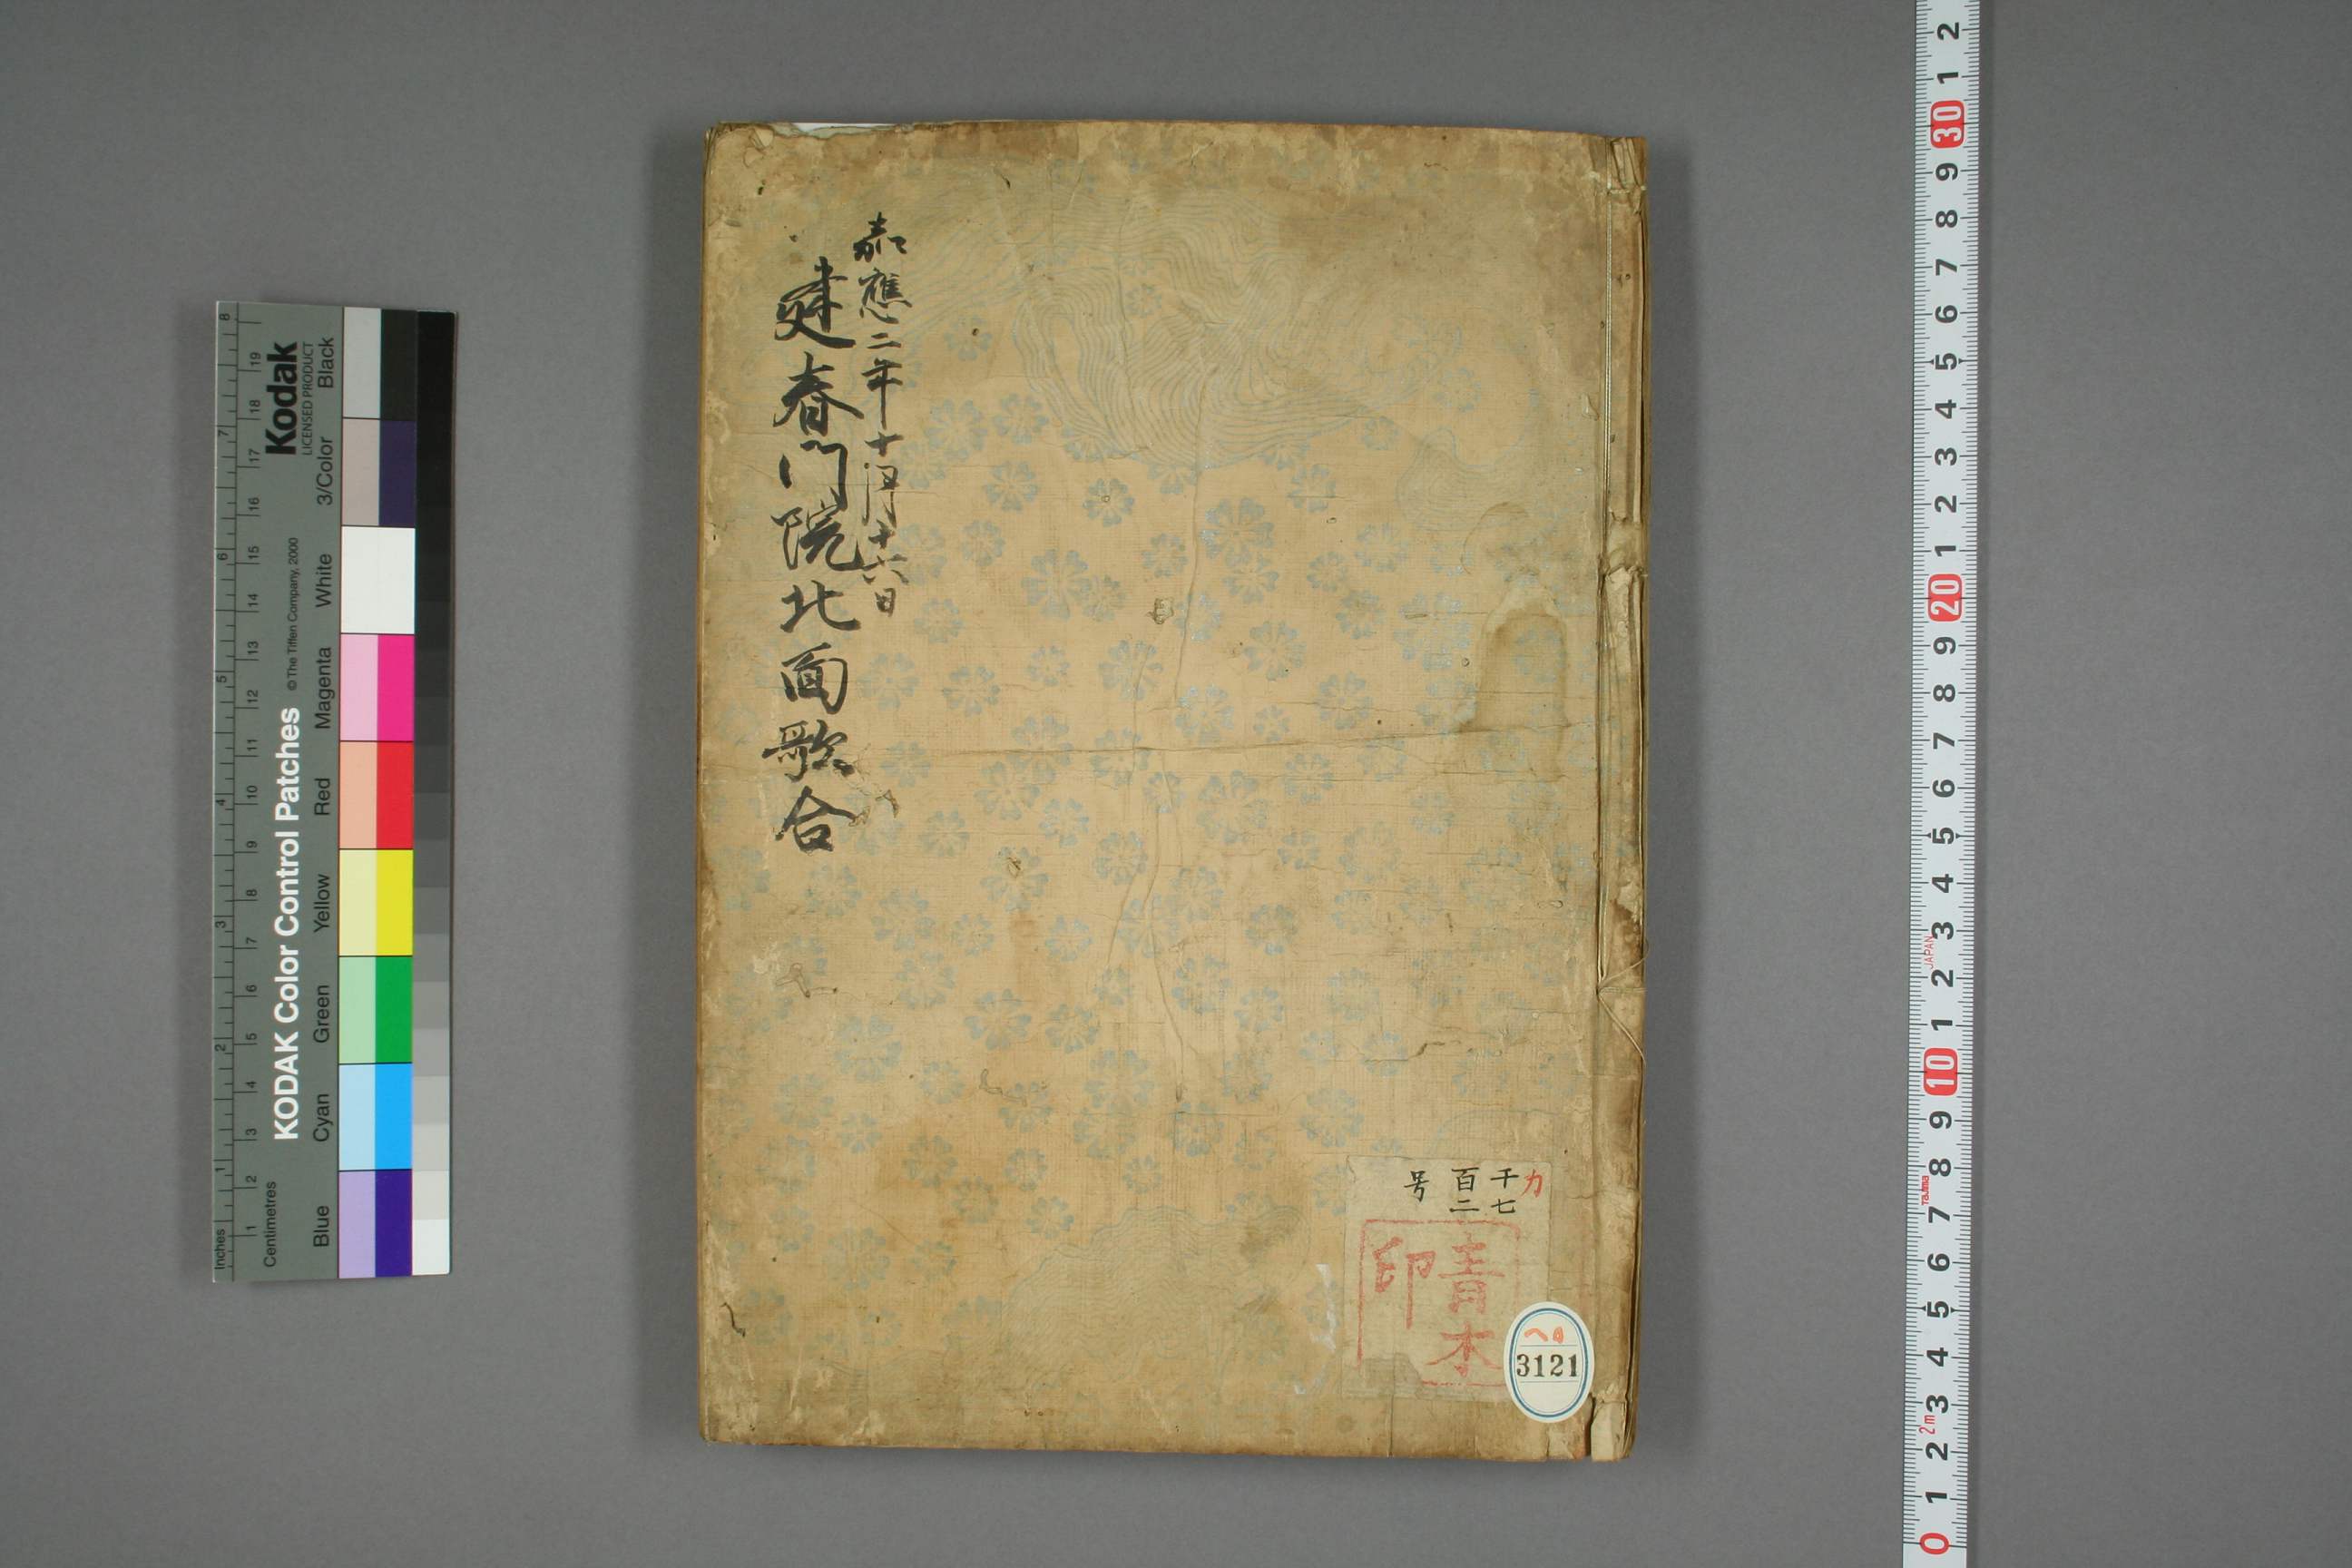 嘉應二年十月十六日
建春門院北面歌合
カ
千七
百二
号
青木
印
ヘロ
3121
Kodak
LICENSED PRODUCT
KODAK Color Control Patches
© The Tiffen Company, 2000
Inches
Centimetres
1 2 3 4 5 6 7 8
1 2 3 4 5 6 7 8 9 10 11 12 13 14 15 16 17 18 19
Blue Cyan Green Yellow Red Magenta White 3/Color Black
0 1 2 3 4 5 6 7 8 9 10 1 2 3 4 5 6 7 8 9 20 1 2 3 4 5 6 7 8 9 30 1 2
2m
Tajima
JAPAN